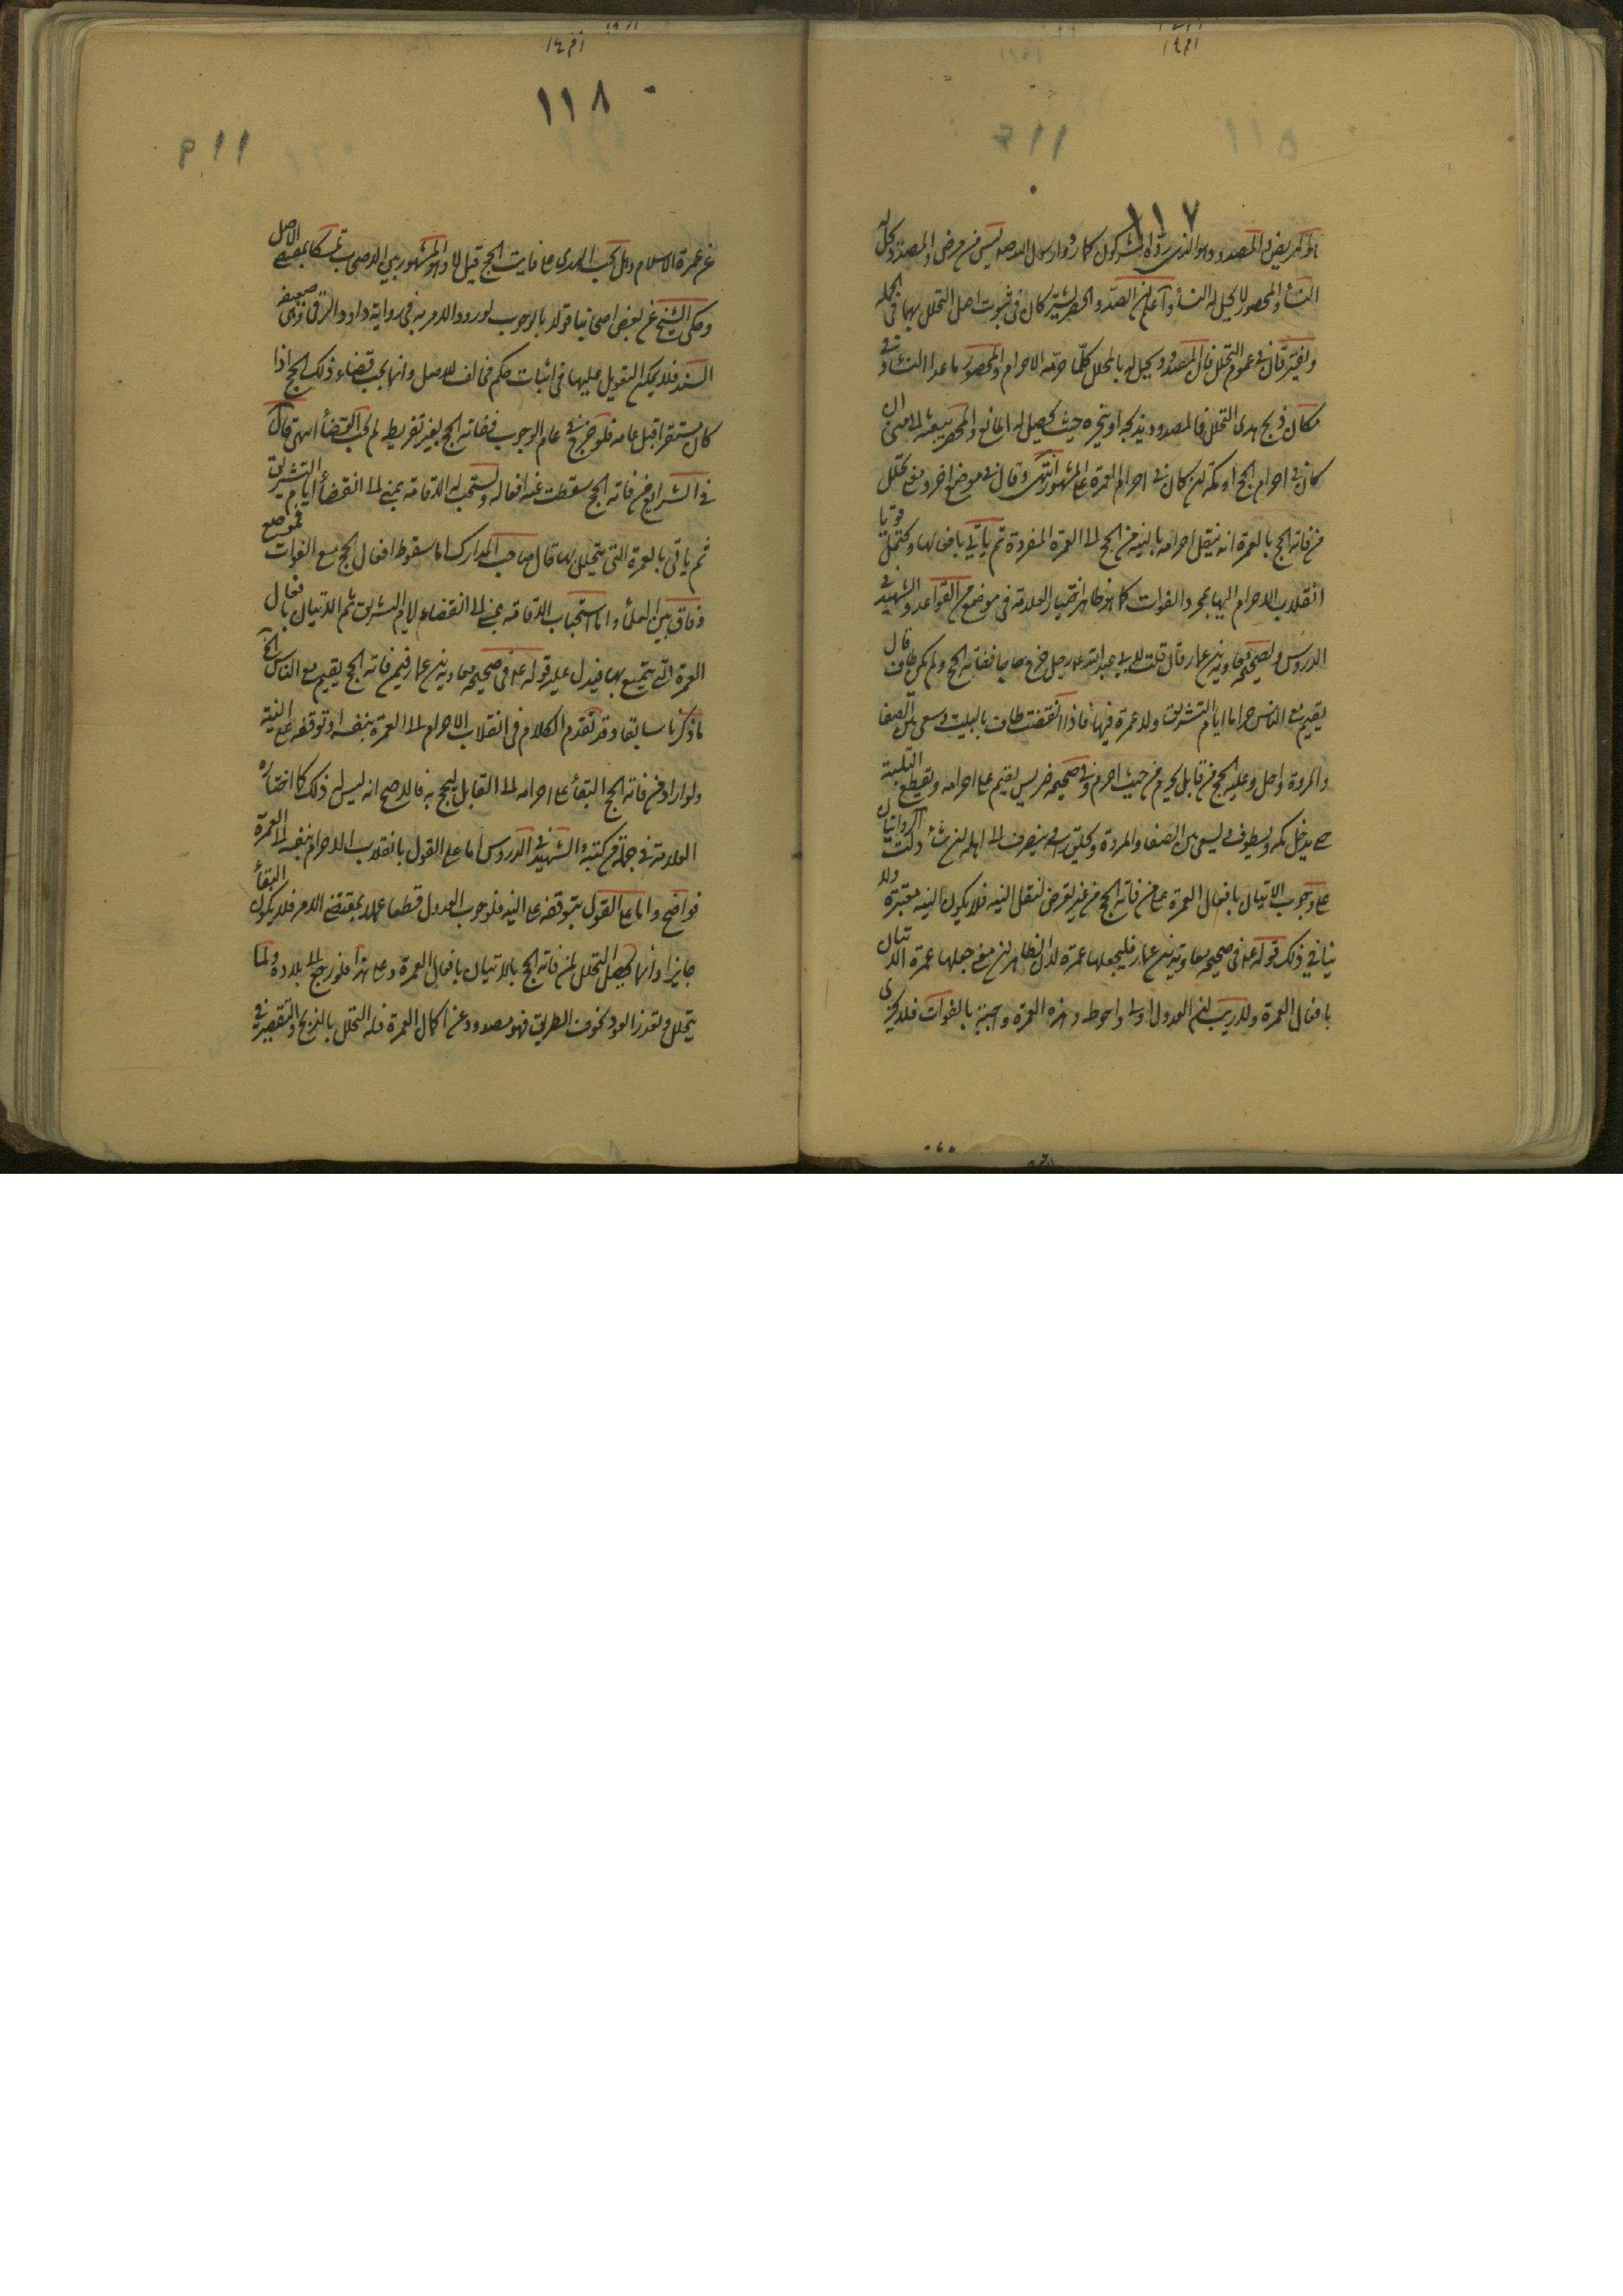 ١١٧
هو المريض والمصدود وهو الذي رده المشركون كما ردوا رسول الله صلعم ليس من مرض والمصدود تحل له
النساء والمحصور لا يحل له النساء واعلم ان الصد والحصر يشتركان في ثبوت اصل التحلل بهما في الجملة
ويفترقان في عموم التحلل فان المصدود يحل له بالمحلل كلما حرمه الاحرام والمحصور ما عدا النساء وفي
مكان ذبح هدى التحلل فالمصدود يذبحه او ينحره حيث يحصل له المانع والمحصر يبعثه الى منى ان
كان في احرام الحج او بمكة ان كان في احرام العمرة على المشهور انتهى وقال في موضع اخر ومعنى تحلل
من فاته الحج بالعمرة انه ينقل احرامه بالنية من الحج الى العمرة المفردة ثم يأتي بافعالها ويحتمل قويا
انقلاب الاحرام اليها بمجرد الفوات كما هو ظاهر اختيار العلامة في موضع من القواعد والشهيد في
الدروس ولصحيحة معاوية بن عمار قال قلت لابي عبد الله رجل خرج حاجا ففاته الحج ولم يكن طاف قال
يقيم مع الناس حراما ايام التشريق ولا عمرة فيها فاذا انقضت طاف بالبيت وسعى بين الصفا
والمروة واحل وعليه الحج من قابل يحرم من حيث احرم وفي صحيحة ضريس يقيم على احرامه ويقطع التلبية
حتى يدخل مكة ويطوف ويسعى بين الصفا والمروة ويحلق راسه وينصرف الى اهله ان شاء دلت الروايتان
على وجوب الاتيان بافعال العمرة على من فاته الحج من غير تعرض لنقل النية فلا يكون النية معتبرة ولا
ينافي ذلك قوله ع في صحيحة معاوية بن عمار فليجعلها عمرة لان الظاهر ان معنى جعلها عمرة الاتيان
بافعال العمرة ولا ريب ان العدول اولى واحوط وهذه العمرة واجبة بالفوات فلا تجزى
١١٨
عن عمرة الاسلام وهل يجب الهدي على فايت الحج قيل لا وهو المشهور بين الاصحاب تمسكا بمقتضى الاصل
وحكى الشيخ عن بعض اصحابنا قولا بالوجوب لورود الامر به في رواية داود الرقى وهي ضعيفة
السند فلا يمكن التعويل عليها في اثبات حكم مخالف للاصل وانما يجب قضاء ذلك الحج اذا
كان مستقرا قبل عامه فلو خرج في عام الوجوب ففاته الحج بغير تفريط لم يجب القضاء انتهى قال
في الشرايع من فاته الحج سقطت عنه افعاله ويستحب له الاقامة بمنى الى انقضاء ايام التشريق
ثم ياتي بالعمرة التي يتحلل بها قال صاحب المدارك اما سقوط افعال الحج مع الفوات فموضع
وفاق بين العلماء واما استحباب الاقامة بمنى الى انقضاء ايام التشريق ثم الاتيان بافعال
العمرة التي يتمتع بها فيدل عليه قوله ع في صحيحة معاوية بن عمار فيمن فاته الحج يقيم مع الناس الخ
ما ذكرنا سابقا وقد تقدم الكلام في انقلاب الاحرام الى العمرة بنفسه او توقفه على النية
ولو اراد من فاته الحج البقاء على احرامه الى القابل ليحج به فالاصح انه ليس له ذلك كما اختاره
العلامة في جملة من كتبه والشهيد في الدروس اما على القول بانقلاب الاحرام بنفسه الى العمرة
فواضح واما على القول بتوقفه على النية فلوجوب العدول قطعا عملا بمقتضى الامر فلا يكون البقاء
جايزا وانما يحصل التحلل لمن فاته الحج بالاتيان بافعال العمرة وعلى هذا فلو رجع الى بلاده ولما
يتحلل وتعذر العود لخوف الطريق فهو مصدود عن اكمال العمرة فله التحلل بالذبح والتقصير في